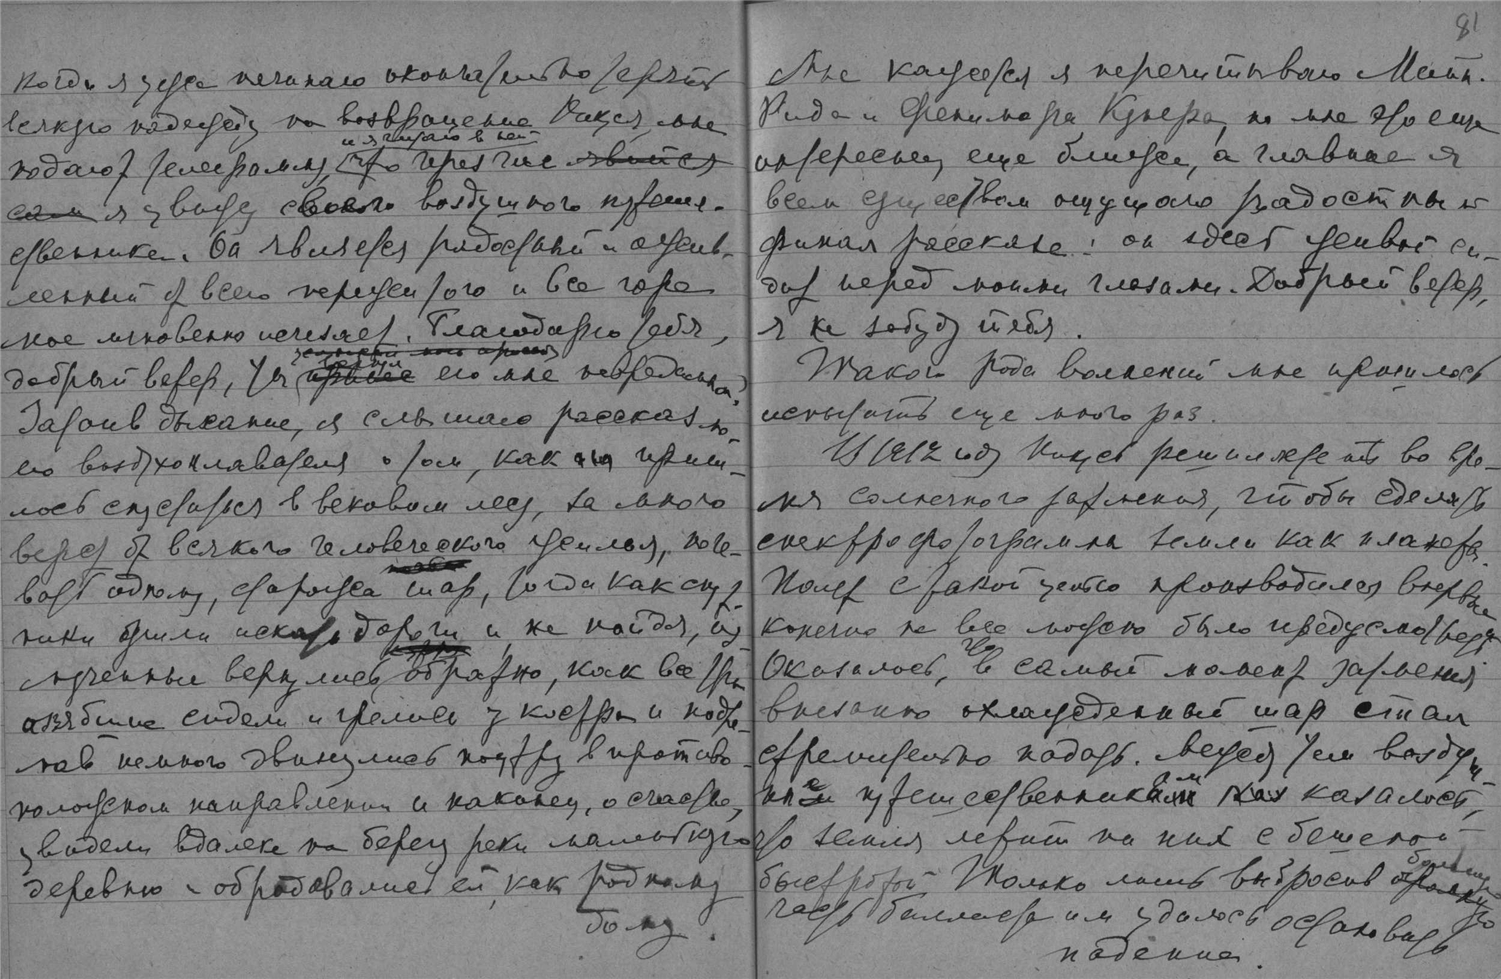 когда я уже начинаю окончательно терять
всякую надежду на возвращение Ганся, мне
и я читаю в ней
подают телеграмму, что через час явится
сам я увижу своего воздушного путеше-
ственника. Он является радостный и ожив-
ленный от всего пережитого и все горе
мое мгновенно исчезает. Благодарю тебя,
добрый ветер, ты вернул его мне невредимым!
Затаив дыхание, я слышаю рассказ мо-
его воздухоплавателя о том, как им приш-
лось спуститься в вековом лесу, за много
верст от всякого человеческого жилья, ноче-
вать одному, сторожа шар, тогда как спут-
ники ушли искать дороги и, не найдя, из
мученные вернулись обратно, как все три
озябшие сидели и грелись у костра и подре-
мав немного двинулись поутру в противо-
положном направлении и наконец, о счастье,
увидели вдалеке на берегу реки маленькую
деревню и обрадовались ей, как родному
дому.
81
Мне кажется я перечитываю Майн-
Рида и Фенимора Купера, но мне это еще
интересней, еще ближе, а главное я
всем существом ощущаю радостный
финал рассказа: он здесь живой си-
дит перед моими глазами. Добрый ветер,
я не забуду тебя.
Такого рода волнений мне пришлось
испытать еще много раз.
В 1912 году Ганся решил лететь во вре-
мя солнечного затмения, чтобы сделать
спектрофотограммы земли как планеты.
Полет с такой целью производился впервые
конечно не все можно было предусмотреть
Оказалось, что в самый момент затмения
внезапно охлажденный шар стал
стремительно падать. Между тем воздуш-
ным путешественникам казалось,
что земля летит на них с бешеной
быстротой. Только лишь выбросив большую
часть балласта им удалось остановить
падение.